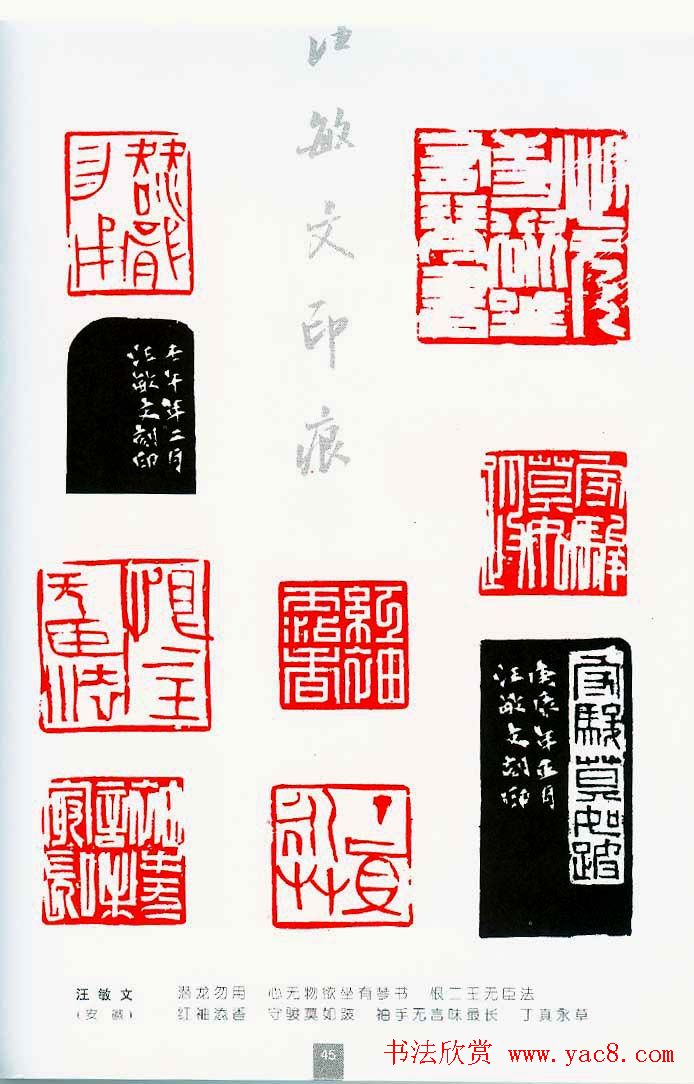 汪敏文印痕
壬午年二月
汪敏文刻印
恨二王
无臣法
守駿莫如跛
汪敏文刻印
汪敏文 潜龙勿用 心无物欲坐有琴书 恨二王无臣法
(安徽) 红袖添香 守骏莫如跛 袖手无言味最长 丁真永草
45
书法欣赏 www.yac8.com